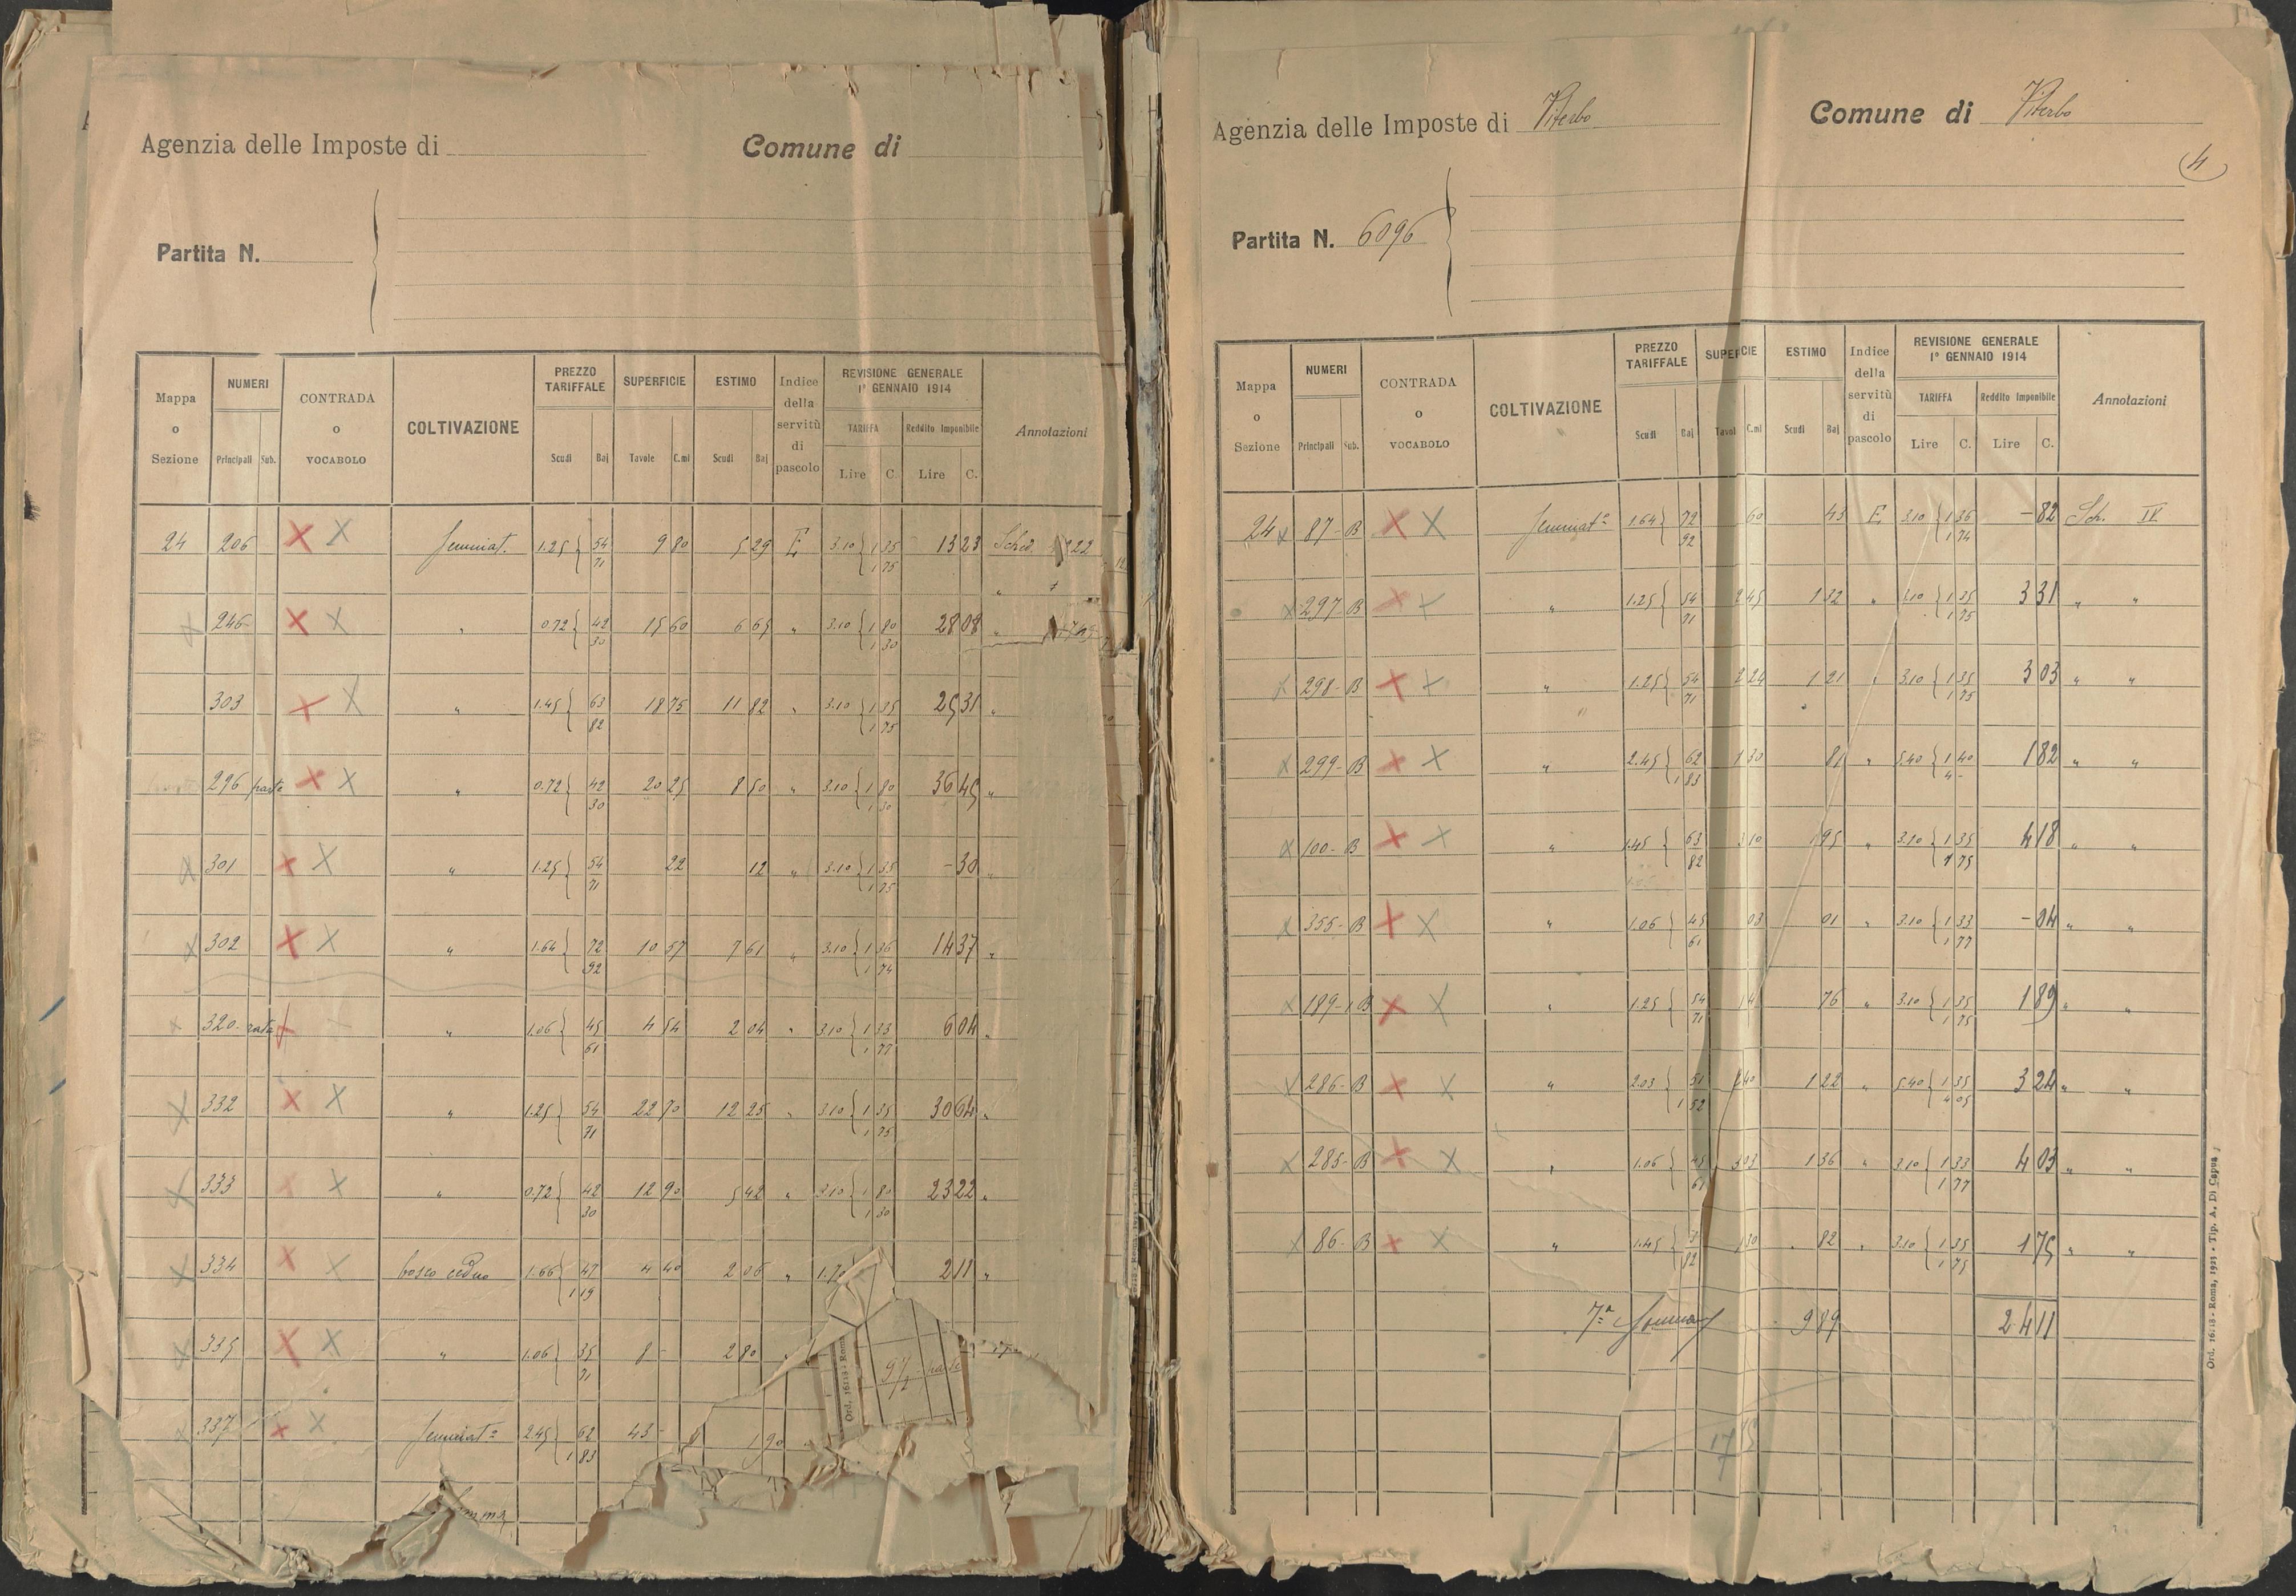 Agenzia delle Imposte di
Comune di
Partita N.
Mappa o Sezione
NUMERI
Principali Sub.
CONTRADA o VOCABOLO
COLTIVAZIONE
PREZZO TARIFFALE
Scudi Baj
SUPERFICIE
Tavole C.mi
ESTIMO
Scudi Baj
Indice della servitù di pascolo
REVISIONE GENERALE 1° GENNAIO 1914
TARIFFA
Lire C.
Reddito Imponibile
Lire C.
Annotazioni
24 206 X X Seminat. 1.25 { 54 71 9 80 5 29 E 3.10 { 1 35 1 75 13 23 Sched. 222
X 246 X X " 0.72 { 42 30 15 60 6 65 " 3.10 { 1 80 1 30 28 08 "
303 X X " 1.45 { 63 82 18 75 11 82 " 3.10 { 1 35 1 75 25 31 "
296 parte X X " 0.72 { 42 30 20 25 8 50 " 3.10 { 1 80 1 30 36 45 "
X 301 X X " 1.25 { 54 71 22 12 " 3.10 { 1 35 1 75 - 30 "
X 302 X X " 1.64 { 72 92 10 57 7 61 " 3.10 { 1 36 1 74 14 37 "
X 320 rata X " 1.06 { 45 61 4 54 2 04 " 3.10 { 1 33 1 77 6 04 "
X 332 X X " 1.25 { 54 71 22 70 12 25 " 3.10 { 1 35 1 75 30 64 "
X 333 X X " 0.72 { 42 30 12 90 5 42 " 3.10 { 1 80 1 30 23 22 "
X 334 X X bosco ceduo 1.66 { 47 1 19 4 40 2 06 " 1.7 2 11 "
X 335 X X " 1.06 { 35 71 8 - 2 80
X 337 X X Seminat.a 2.45 { 62 1 83 43 - 1 90
Ord. 16118 - Roma
parte
Agenzia delle Imposte di Viterbo
Comune di Viterbo
4
Partita N. 6096
Mappa o Sezione
NUMERI
Principali Sub.
CONTRADA o VOCABOLO
COLTIVAZIONE
PREZZO TARIFFALE
Scudi Baj
SUPERFICIE
Tavol C.mi
ESTIMO
Scudi Baj
Indice della servitù di pascolo
REVISIONE GENERALE 1° GENNAIO 1914
TARIFFA
Lire C.
Reddito Imponibile
Lire C.
Annotazioni
24 X 87 - B X X Seminat.o 1.64 { 72 92 60 43 E 3.10 { 1 36 1 74 - 82 Sch. IV
X 297 - B X X " 1.25 { 54 71 2 45 1 32 " 3.10 { 1 35 1 75 3 31 " "
X 298 - B X X " 1.25 { 54 71 2 24 1 21 " 3.10 { 1 35 1 75 3 03 " "
X 299 - B X X " 2.45 { 62 1 83 1 30 81 " 5.40 { 1 40 4 - 1 82 " "
X 100 - B X X " 1.45 { 63 82 3 10 1 95 " 3.10 { 1 35 1 75 4 18 " "
X 355 - B X X " 1.06 { 45 61 03 01 " 3.10 { 1 33 1 77 - 04 " "
X 189 - 1 B X X " 1.25 { 54 71 1 4 76 " 3.10 { 1 35 1 75 1 89 " "
X 286 - B X X " 2.03 { 51 1 52 2 40 1 22 " 5.40 { 1 35 4 05 3 24 " "
X 285 - B X X " 1.06 { 45 61 3 03 1 36 " 3.10 { 1 33 1 77 4 03 " "
X 86 - B X X " 1.45 { 82 1 30 82 " 3.10 { 1 35 1 75 1 75 " "
7a Somma 9 89 24 11
17
Ord. 16118 - Roma, 1923 - Tip. A. Di Capua